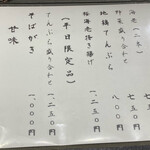 海老(二本) 七五〇円
野菜盛り合わせ 八〇〇円
地鶏てんぷら 七五〇円
桜海老掻き揚げ 一、二五〇円
(平日限定品)
てんぷら盛り合わせ 一、二五〇円
そばがき 一、〇〇〇円
甘味